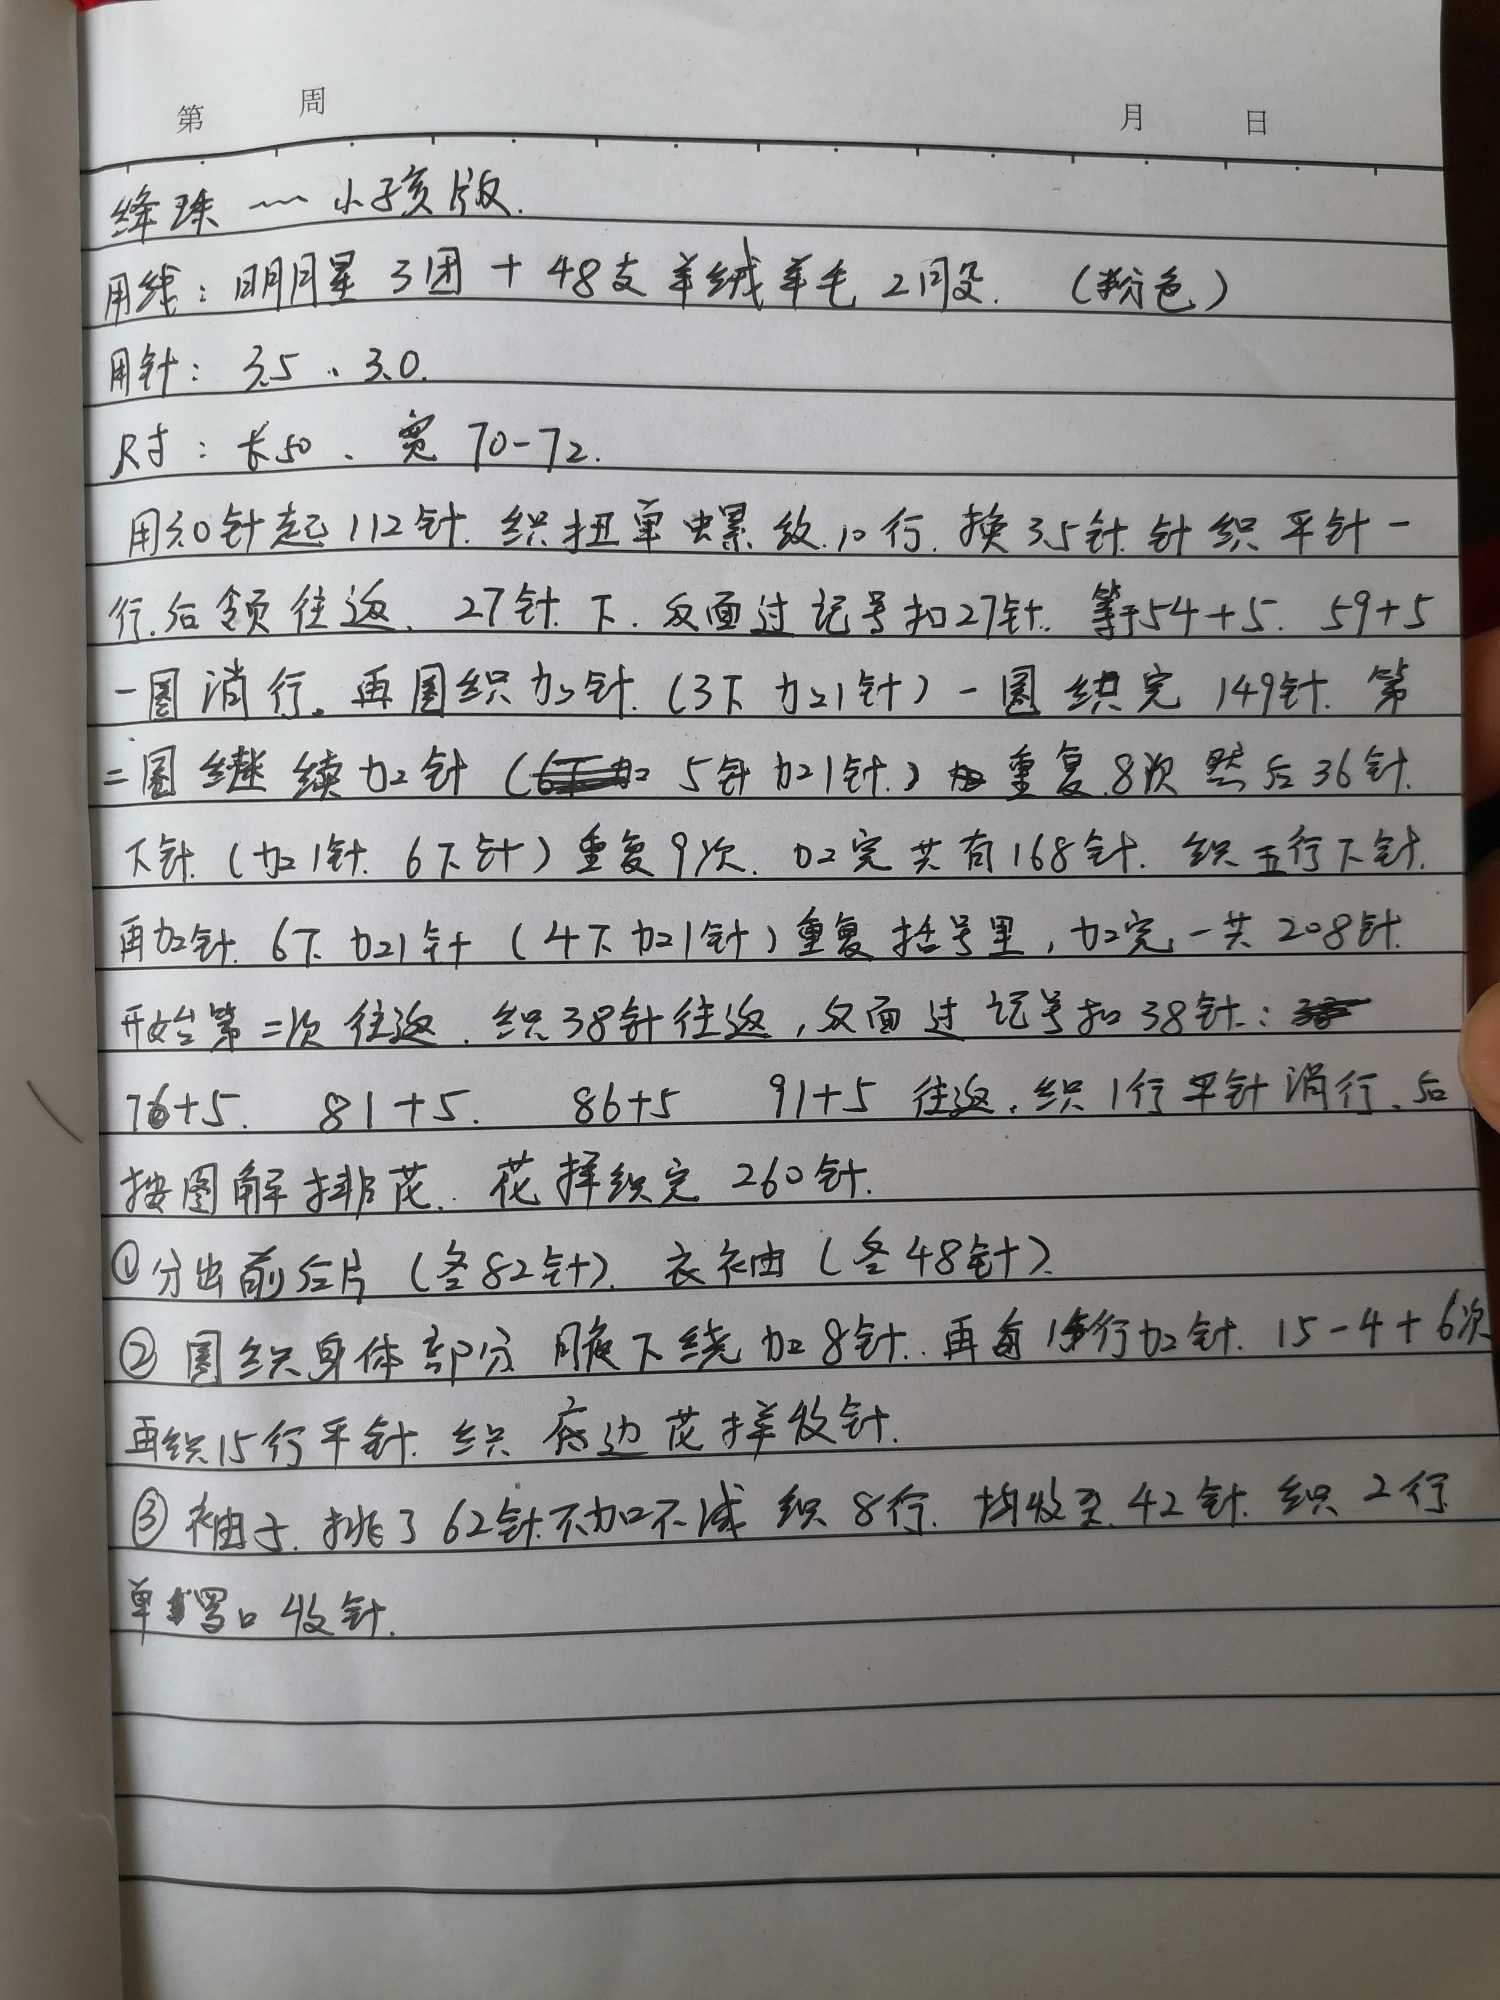 第 周 月 日
绛珠 ~~ 小孩版.
用线：明月星 3团 + 48支羊绒羊毛 2股. (粉色)
用针：3.5、3.0.
尺寸：长50、宽 70-72.
用3.0针起112针.织扭单螺纹.10行.换3.5针.针织平针一
行.后领往返.27针.下.反面过记号扣27针.等于54+5. 59+5
一圈消行。再圈织加针.(3下加1针)一圈织完 149针.第
二圈继续加针(5针加1针.)重复.8次 然后36针.
下针.(加1针.6下针)重复9次.加完共有168针.织五行下针.
再加针.6下加1针(4下加1针)重复括号里,加完一共208针.
开始第二次往返.织38针往返,反面过记号扣38针:
76+5. 81+5. 86+5 91+5 往返.织1行平针消行.后
按图解排花.花样织完260针.
①分出前后片(各82针).衣袖(各48针).
②圈织身体部分 腋下绕加8针.再每行加针.15-4+6次
再织15行平针.织底边花样收针.
③袖子.挑了62针.不加不减 织8行.均收至.42针.织2行
单收针.